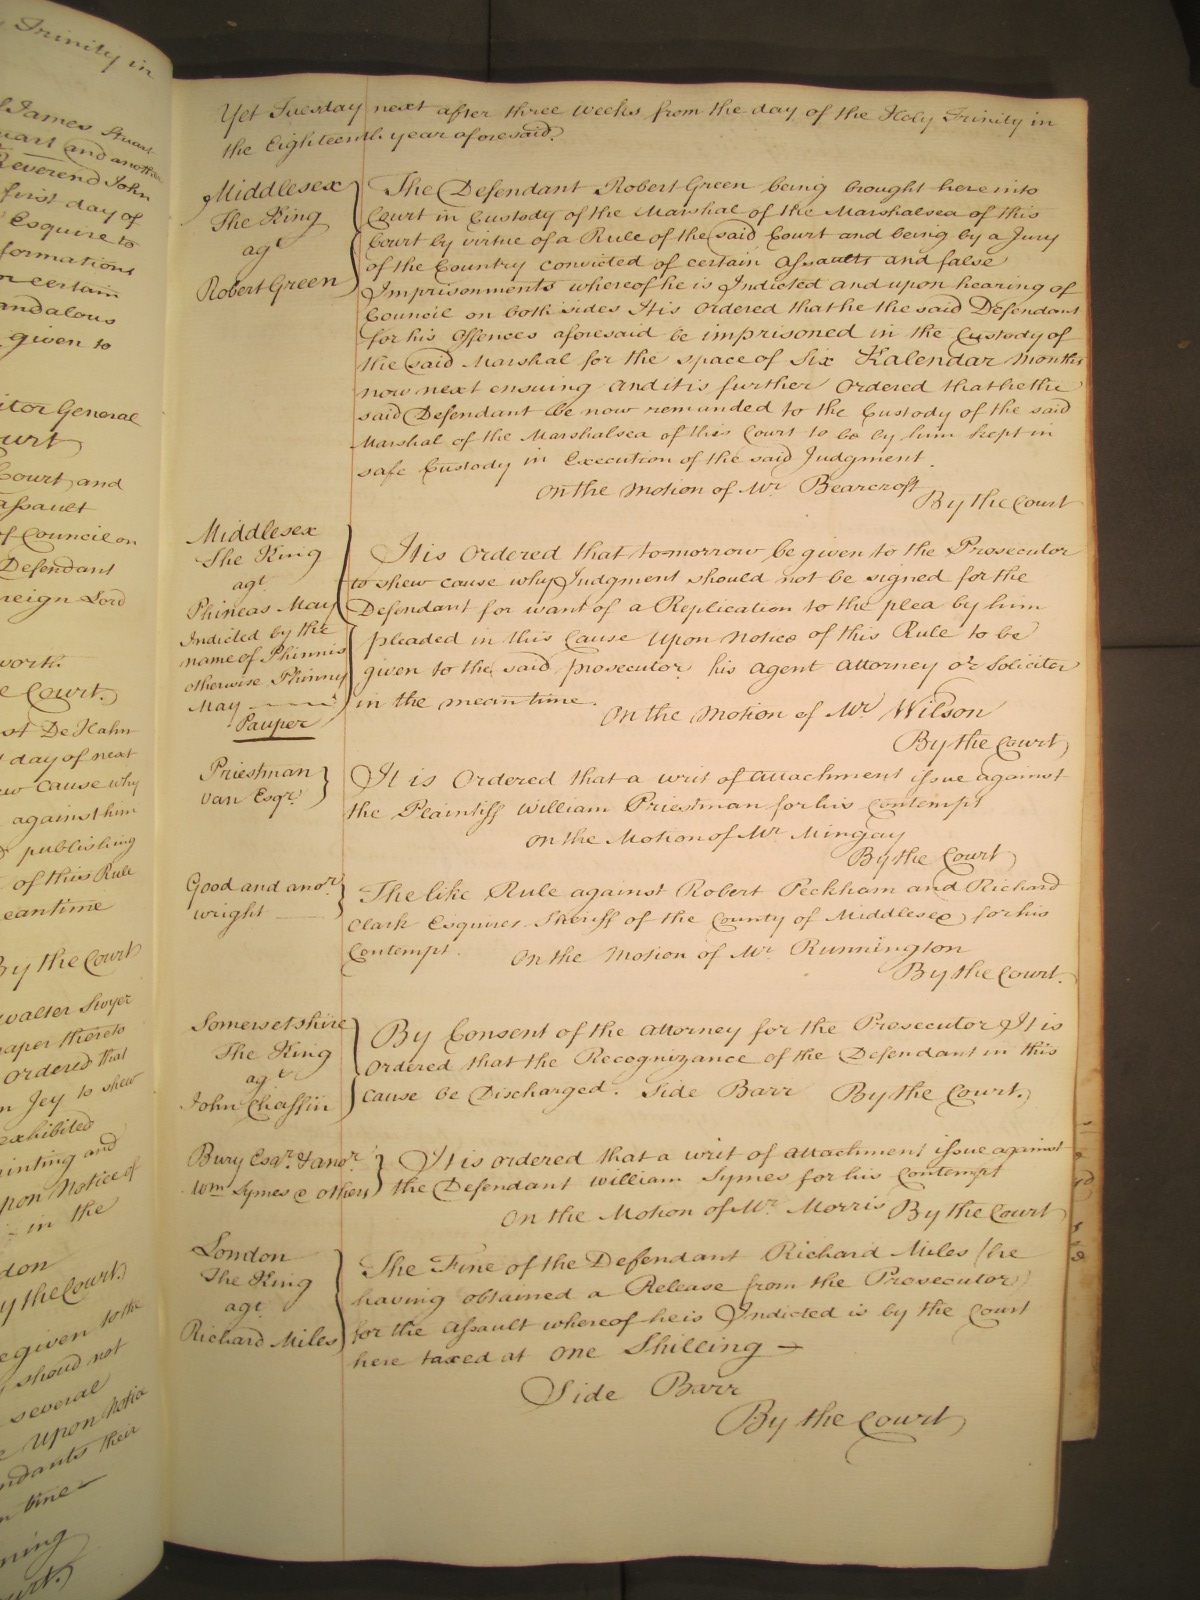 Trinity in
James Stuart
uart and another
Reverend John
first day of
Esquire to
formations
n certain
andalous
given to
itor General
ourt
Court and
assault
of Council on
Defendant
reign Lord
work.
e Court.
st De Hahn
day of next
ew cause why
against him
publishing
of this Rule
eantime
By the Court
walter Swyer
aper thereto
ordered that
n Jey to shew
exhibited
rinting and
pon Notice of
in the
don
y the Court.
e given to the
shoud not
several
e upon Notice
ndants their
n time
ning
ourt.
Yet Tuesday next after three weeks from the day of the Holy Trinity in
the Eighteenth year aforesaid.
Middlesex
The King
agt
Robert Green
The Defendant Robert Green being brought here into
Court in Custody of the Marshal of the Marshalsea of this
Court by virtue of a Rule of the said Court and being by a Jury
of the Country convicted of certain assaults and false
Imprisonments whereof he is Indicted and upon hearing of
Council on both sides It is ordered that he the said Defendant
for his Offences aforesaid be imprisoned in the Custody of
the said Marshal for the space of Six Kalendar Months
now next ensuing and it is further ordered that he the
said Defendant be now remanded to the Custody of the said
Marshal of the Marshalsea of this Court to be by him kept in
safe Custody in Execution of the said Judgment.
On the Motion of Mr Bearcroft
By the Court
Middlesex
The King
agt
Phineas May
Indicted by the
name of Phinnis
otherwise Phinny
May
Pauper
It is ordered that tomorrow be given to the Prosecutor
to shew cause why Judgment should not be signed for the
Defendant for want of a Replication to the plea by him
pleaded in this Cause upon Notice of this Rule to be
given to the said prosecutor his agent attorney or Soliciter
in the mean time.
On the Motion of Mr Wilson
By the Court
Priestman
van Esqr.
It is Ordered that a writ of attachment issue against
the Plaintiff William Priestman for his contempt
On the Motion of Mr Mingay
By the Court
Good and anor.
wright
The like Rule against Robert Peckham and Richard
Clark Esquires Sheriff of the County of Middlesex for his
Contempt.
On the Motion of Mr. Runnington
By the Court.
Somersetshire
The King
agt
John Chaffin
By Consent of the attorney for the Prosecutor It is
ordered that the Recognizance of the Defendant in this
cause be Discharged. Side Barr By the Court.
Bury Esqr. & anor.
Wm Symes & others
It is ordered that a writ of attachment issue against
the Defendant William Symes for his Contempt
On the Motion of Mr. Morris By the Court
London
The King
agt
Richard Miles
The Fine of the Defendant Richard Miles (he
having obtained a Release from the Prosecutor)
for the assault whereof he is Indicted is by the Court
here taxed at one Shilling
Side Barr
By the Court